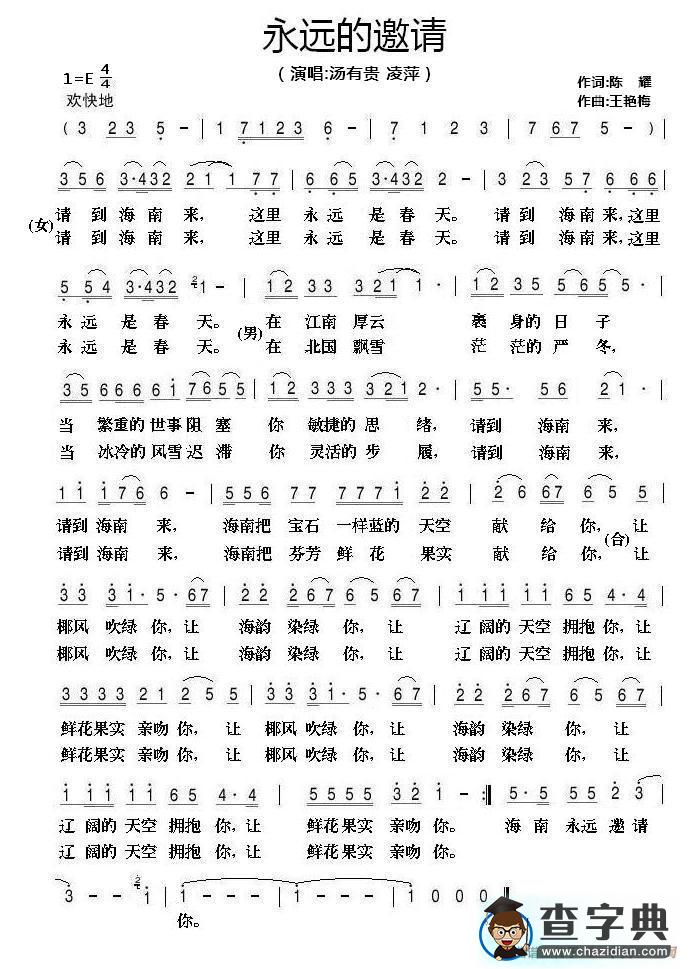 永远的邀请
(演唱:汤有贵 凌萍)
1=E 4/4
作词:陈 耀
欢快地
作曲:王艳梅
( 3 23 5 - | 1 7123 6 - | 7 1 23 1 | 7 67 5 - )|
356 3·432 2 1 1 7 7 | 6 5 5 3·432 2 - | 3 23 5 7 6 6 6 |
(女)请 到 海 南 来, 这里 永 远 是 春 天。 请 到 海 南 来,这里
请 到 海 南 来, 这里 永 远 是 春 天。 请 到 海 南 来,这里
5 54 3·432 2 1 - | 1 2 33 3 2 1 1 | 1 2 35 5 655 · |
永 远 是 春 天。(男)在 江南 厚云 裹 身的 日 子
永 远 是 春 天。 在 北国 飘雪 茫 茫的 严 冬,
35 666 61 7655 | 12 333 3212 · | 5 5 · 56 21 · |
当 繁重的 世事 阻 塞 你 敏捷的 思 绪, 请到 海南 来,
当 冰冷的 风雪 迟 滞 你 灵活的 步 履, 请到 海南 来,
11 176 6 - | 556 77 7771 22 | 2 67 67 5 5 |
请到 海南 来, 海南把 宝石 一样蓝的 天空 献 给 你, 让
请到 海南 来, 海南把 芬芳 鲜 花 果实 献 给 你,(合)让
33 31· 5 · 67 | 22 267 6 5 67 | 1 111 1165 67 |
椰风 吹绿 你, 让 海韵 染绿 你, 让 辽 阔的 天空 拥抱 你,让
椰风 吹绿 你, 让 海韵 染绿 你, 让 辽 阔的 天空 拥抱 你,让
3333 21 2 5 5 | 33 31· 5 · 67 | 22 267 6 5 67 |
鲜花果实 亲吻 你, 让 椰风 吹绿 你, 让 海韵 染绿 你, 让
鲜花果实 亲吻 你, 让 椰风 吹绿 你, 让 海韵 染绿 你, 让
1 111 11 65 4 · 4 | 5555 32 1 - :‖ 5 · 5 55 2 3 |
辽 阔的 天空 拥抱 你,让 鲜花果实 亲吻 你。 海 南 永远 邀 请
辽 阔的 天空 拥抱 你,让 鲜花果实 亲吻 你。
3 - - 2 1 | 1 - - - | 1 - - - | 1 0 0 0 ‖
你。
查字典
www.chazidian.com